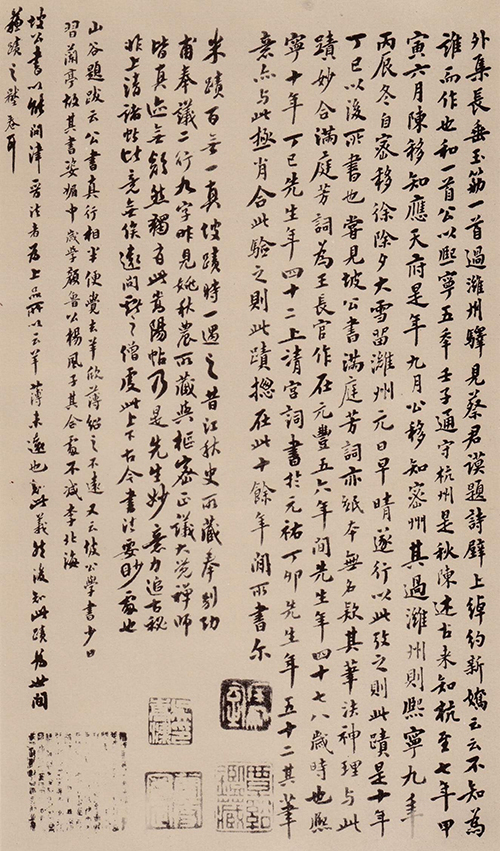 外集長垂玉筯一首過濰驛見蔡君謨題詩壁上綽約新嬌云云不知為
誰而作也和一首公以熙寧五年壬子通守杭州是秋陳述古來知杭至七年甲
寅六月陳移知應天府是年九月公移知密州其過濰州則熙寧九年
丙辰冬自密移徐除夕大雪留濰州元日早晴遂行以此攷之則此蹟是十年
丁巳以後所書也嘗見坡公書滿庭芳詞亦紙本無名欵其筆法神理與此
蹟妙合滿庭芳詞為王長官作在元豐五六年間先生年四十七八歲時也熙
寧十年丁巳先生年四十二上清宮詞書於元祐丁卯先生年五十二其筆
意亦與此極肖合此驗之則此蹟揔在此十餘年間所書尔
米蹟百無一真坡蹟時一遇之昔江秋史所藏奉別功
甫奉議二行九字昨見姚秋農所藏與樞密正議大覺禪師
皆真迹無欵然獨有此嵩陽帖乃是先生妙意力追古秘
非上清諸帖比竟無俟遠問之僧虔此上下古今書法要眇處也
山谷題跋云公書真行相半便覺去羊欣薄紹之不遠又云坡公學書少日
習蘭亭故其書姿媚中歲學顏魯公楊風子其合處不減李北海
坡公書以能問津晉法者為上品所以云羊薄未遠也知此義然後知此蹟為世間
蘇蹟之耳